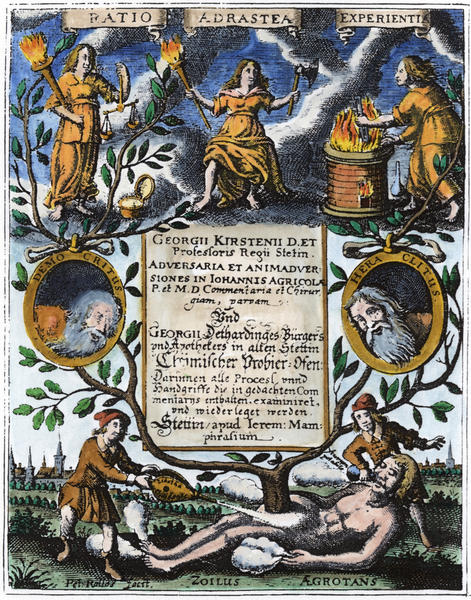 RATIO
ADRASTEA
EXPERIENTIA
DEMO CRITUS
HERA CLITUS
GEORGII KIRSTENII D. ET
Profeſsoris Regii Stetin.
ADVERSARIA ET ANIMADVER
SIONES IN IOHANNIS AGRICOLÆ
P. et M. D Commentaria et Chirur
giam, parvam
Und
GEORGII Dethardinges Burgers
vnd Apothekers in alten Stettin
Chymischer Probier-Ofen:
Darinnen alle Proceſs, vnnd
Handgriffe die in gedachten Com
mentarys entbalten, examiniret,
vnd wiederleget werden
Stetini apud Ierem: Mam-
phrasium
ZOILUS ÆGROTANS